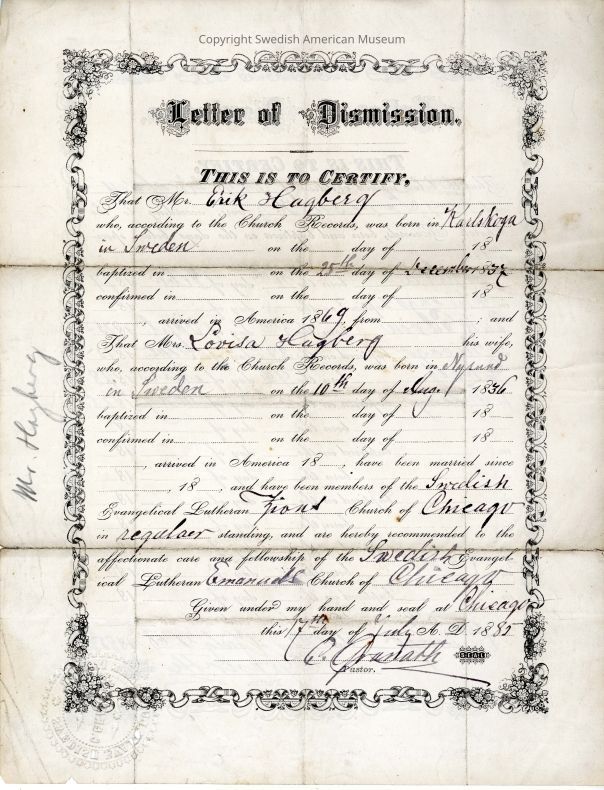 Copyright Swedish American Museum
Letter of Dismission.
THIS IS TO CERTIFY,
That Mr. Erik Hagberg
who, according to the Church Records, was born in Karlskoga
in Sweden on the day of 18
baptized in on the 25th day of December 1832
confirmed in on the day of 18
, arrived in America 1869, from ; and
That Mrs. Lovisa Hagberg his wife,
who, according to the Church Records, was born in
in Sweden on the 10th day of Aug. 1836
baptized in on the day of 18
confirmed in on the day of 18
, arrived in America 18 , have been married since
18 , and have been members of the Swedish
Evangelical Lutheran Church of Chicago
in regulaer standing, and are hereby recommended to the
affectionate care and fellowship of the Swedish Evangel-
ical Lutheran Emanuels Church of Chicago
Given under my hand and seal at Chicago
this 17th day of July A. D. 1885
C. Granath SEAL
Pastor.
Mr. Hagberg